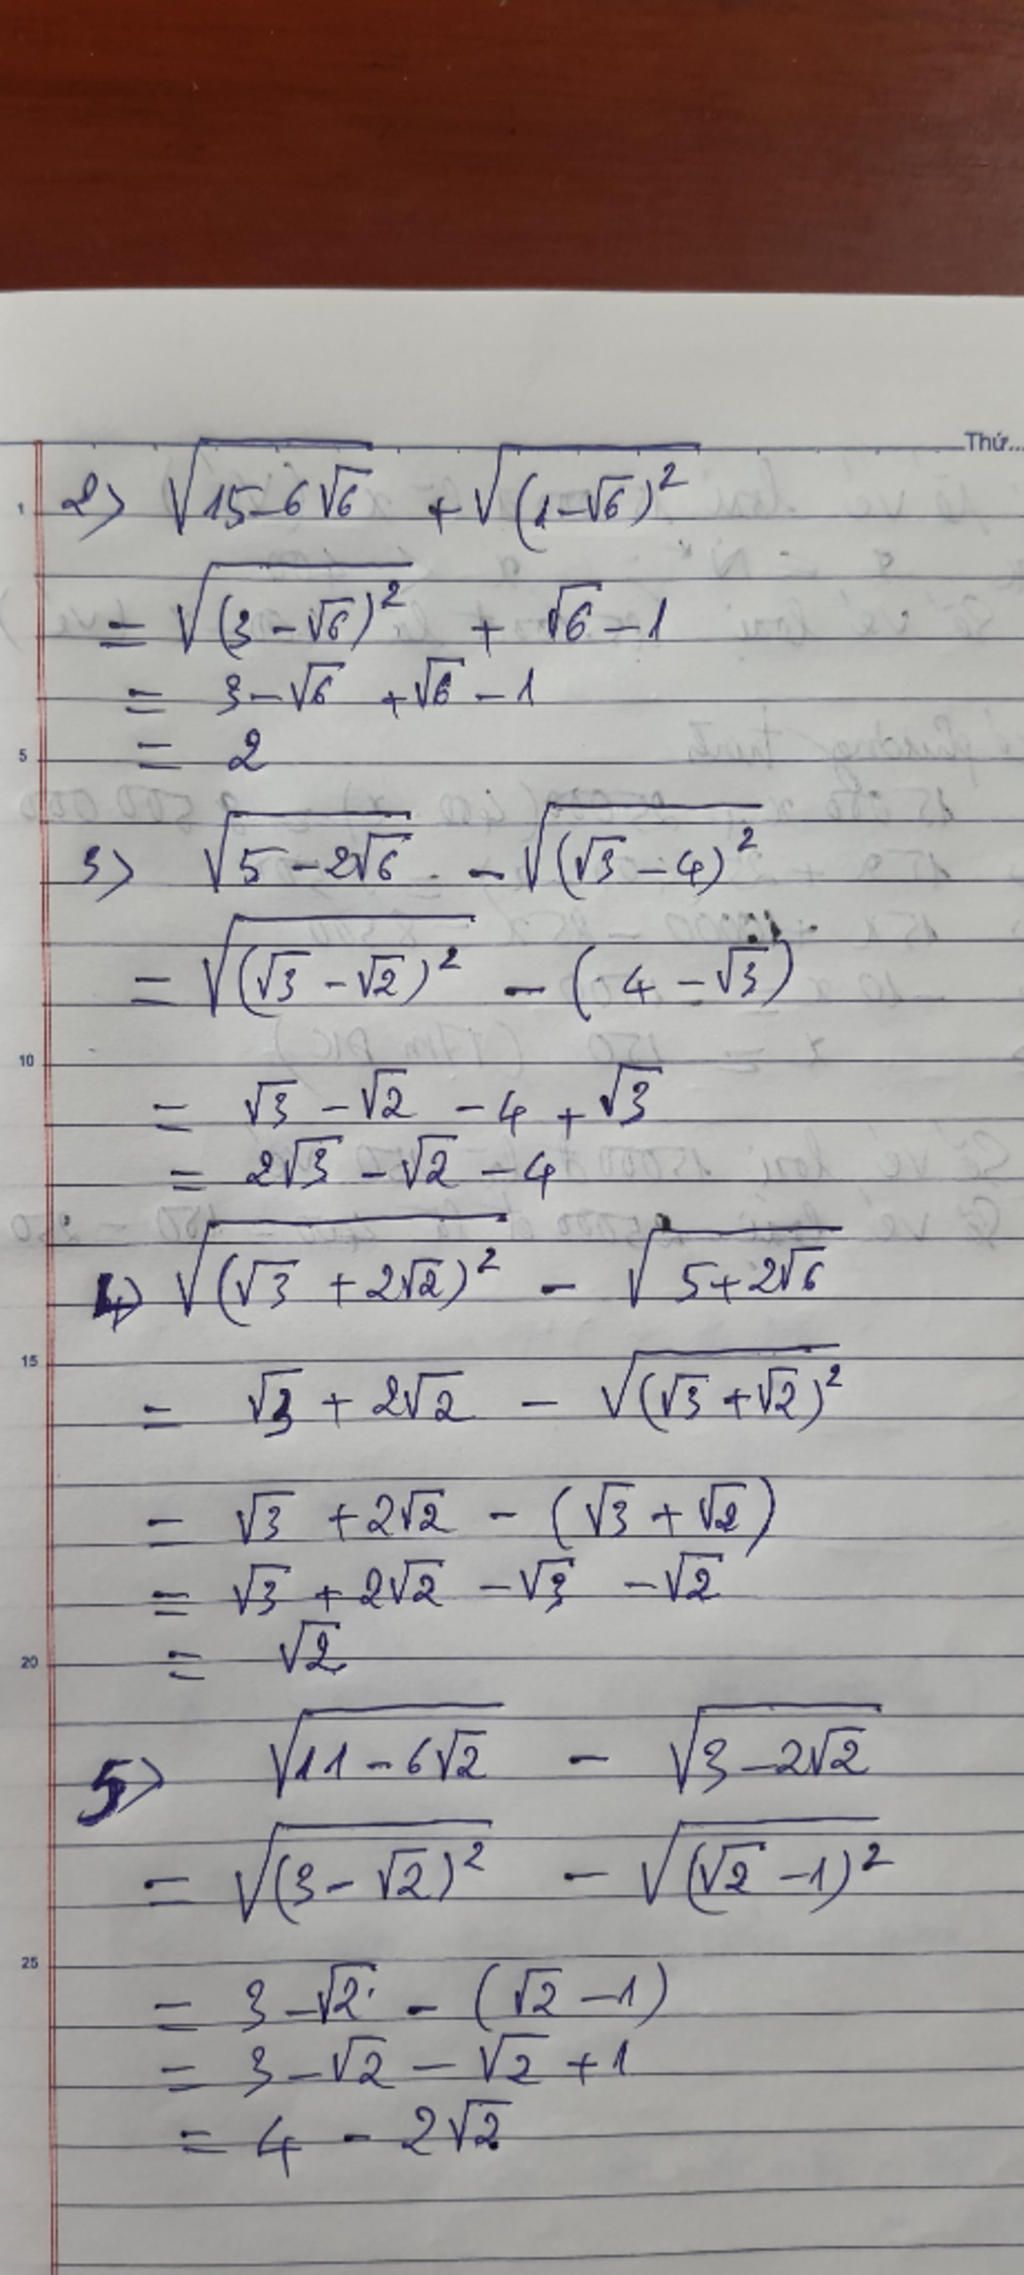 Thứ...
1
2> √(15-6√6) + √((1-√6)²)
= √((3-√6)²) + √6 - 1
= 3-√6 + √6 - 1
5
= 2
3> √(5-2√6) - √((√3-4)²)
= √((√3-√2)²) - (4-√3)
10
= √3 - √2 - 4 + √3
= 2√3 - √2 - 4
4> √((√3+2√2)²) - √(5+2√6)
15
= √3 + 2√2 - √((√3+√2)²)
= √3 + 2√2 - (√3+√2)
= √3 + 2√2 - √3 - √2
20
= √2
5> √(11-6√2) - √(3-2√2)
= √((3-√2)²) - √((√2-1)²)
25
= 3-√2 - (√2-1)
= 3-√2 - √2 + 1
= 4 - 2√2